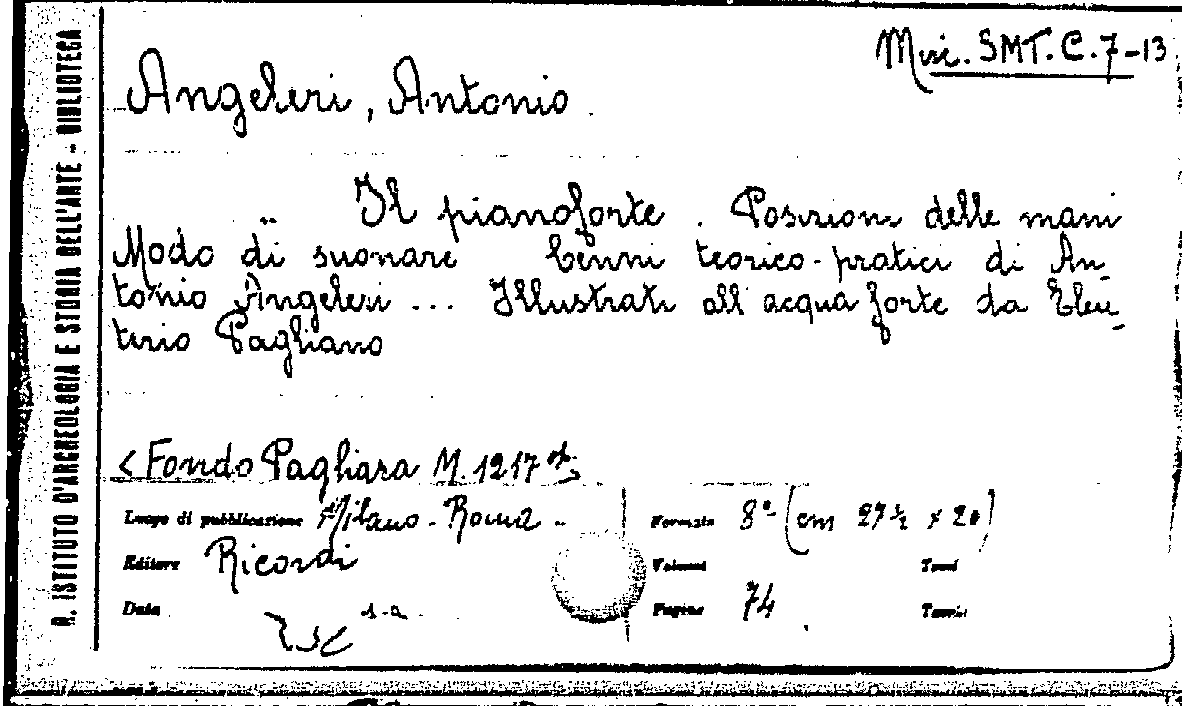 R. ISTITUTO D'ARCHEOLOGIA E STORIA DELL'ARTE - BIBLIOTECA
SMT. C. 7-13
Angeleri, Antonio
Il pianoforte. Posizione delle mani
Modo di suonare Cenni teorico-pratici di An-
tonio Angeleri ... Illustrati all'acqua forte da Eleu-
terio Pagliano
< Fondo Pagliara M. 1217
Luogo di pubblicazione Milano - Roma - Formato 8º (cm 27½ x 20)
Editore Ricordi Volumi Tomi
Data s-a. Pagine 74 Tavole